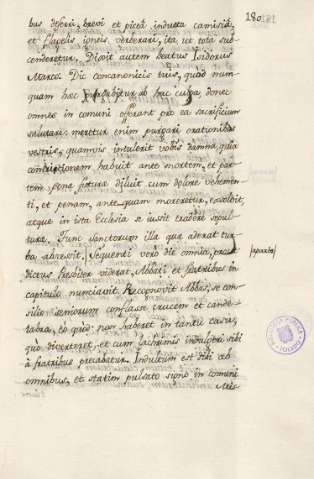 180
bus deferri, brevi et picea indutta camisia,
et flagellis igneis verberari, ita ut tota suc-
cenderetur. Dixit autem beatus Isidorus
Marco. Dic canonicis tuis, quod num-
quam hec purgabitur ab hac culpa, donec
omnes in comuni offerant pro ea sacrificium
salutare: meretur enim purgari orationibus
vestris, quamvis intulerit vobis damna, quia
contritionem habuit ante mortem, et par-
tem pene future diluit cum dolore vehemen-
ti, et penam, ante quam moreretur, exsolvit,
atque in ista Ecclesia se iussit tradere sepul-
ture. Tunc Sanctorum illa que aderat tur-
ba abcessit. Sequenti vero die omnia, prae-
dictus Presbiter viderat, Abbati et fratribus in
capitulo nunciavit. Recognovit Abbas, se con-
silio Seniorum conflasse crucem et cande-
labra, eo quod non haberet in tanta caritate
quo diverteret, et cum lachrimis indulgeri sibi
a fratribus precabatur. Indultum est sibi ab
omnibus, et statim pulsato signo in comuni